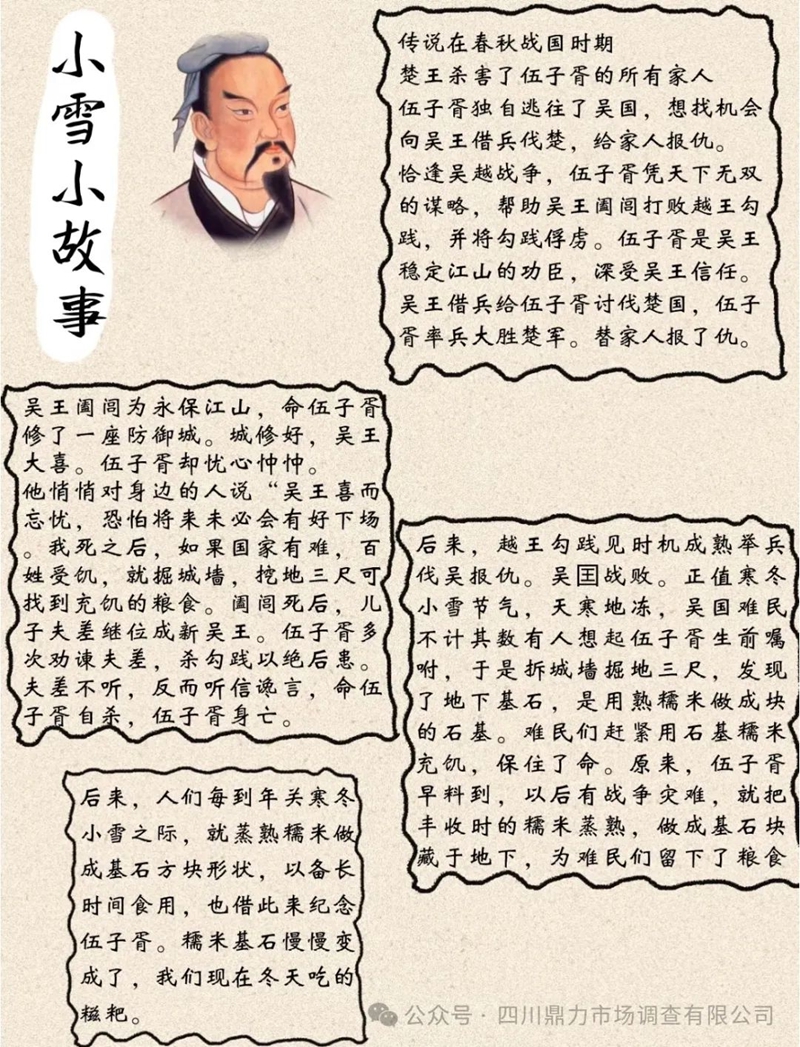 小雪小故事
传说在春秋战国时期
楚王杀害了伍子胥的所有家人
伍子胥独自逃往了吴国，想找机会
向吴王借兵伐楚，给家人报仇。
恰逢吴越战争，伍子胥凭天下无双
的谋略，帮助吴王阖闾打败越王勾
践，并将勾践俘虏。伍子胥是吴王
稳定江山的功臣，深受吴王信任。
吴王借兵给伍子胥讨伐楚国，伍子
胥率兵大胜楚军。替家人报了仇。
吴王阖闾为永保江山，命伍子胥
修了一座防御城。城修好，吴王
大喜。伍子胥却忧心忡忡。
他悄悄对身边的人说“吴王喜而
忘忧，恐怕将来未必会有好下场
。我死之后，如果国家有难，百
姓受饥，就掘城墙，挖地三尺可
找到充饥的粮食。阖闾死后，儿
子夫差继位成新吴王。伍子胥多
次劝谏夫差，杀勾践以绝后患。
夫差不听，反而听信谗言，命伍
子胥自杀，伍子胥身亡。
后来，越王勾践见时机成熟举兵
伐吴报仇。吴国战败。正值寒冬
小雪节气，天寒地冻，吴国难民
不计其数有人想起伍子胥生前嘱
咐，于是拆城墙掘地三尺，发现
了地下基石，是用熟糯米做成块
的石基。难民们赶紧用石基糯米
充饥，保住了命。原来，伍子胥
早料到，以后有战争灾难，就把
丰收时的糯米蒸熟，做成基石块
藏于地下，为难民们留下了粮食
后来，人们每到年关寒冬
小雪之际，就蒸熟糯米做
成基石方块形状，以备长
时间食用，也借此来纪念
伍子胥。糯米基石慢慢变
成了，我们现在冬天吃的
糍粑。
公众号·四川鼎力市场调查有限公司